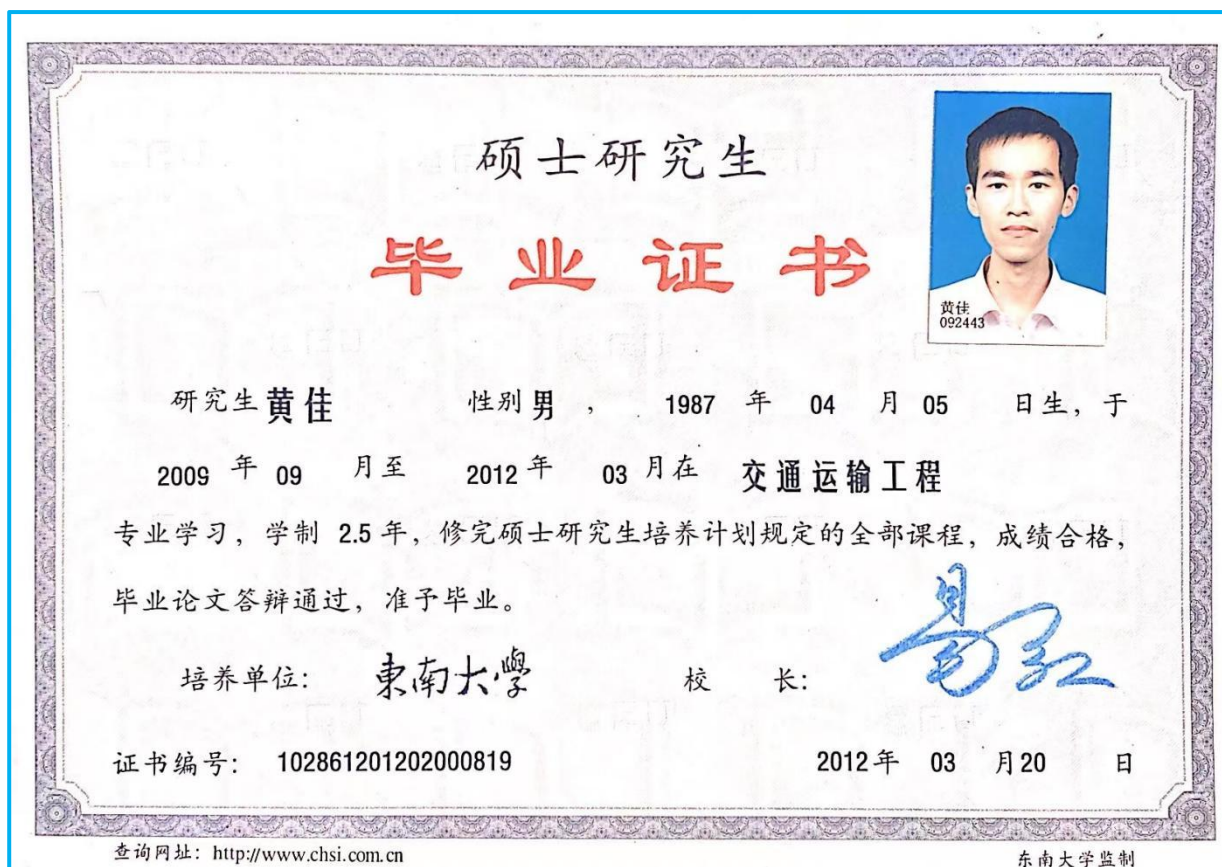 硕士研究生
毕业证书
黄佳
092443
研究生 黄佳 性别 男 ， 1987 年 04 月 05 日生，于
2009 年 09 月至 2012 年 03 月在 交通运输工程
专业学习，学制 2.5 年，修完硕士研究生培养计划规定的全部课程，成绩合格，
毕业论文答辩通过，准予毕业。
培养单位： 東南大學 校 长：
证书编号： 102861201202000819 2012 年 03 月 20 日
查询网址：http://www.chsi.com.cn 东南大学监制